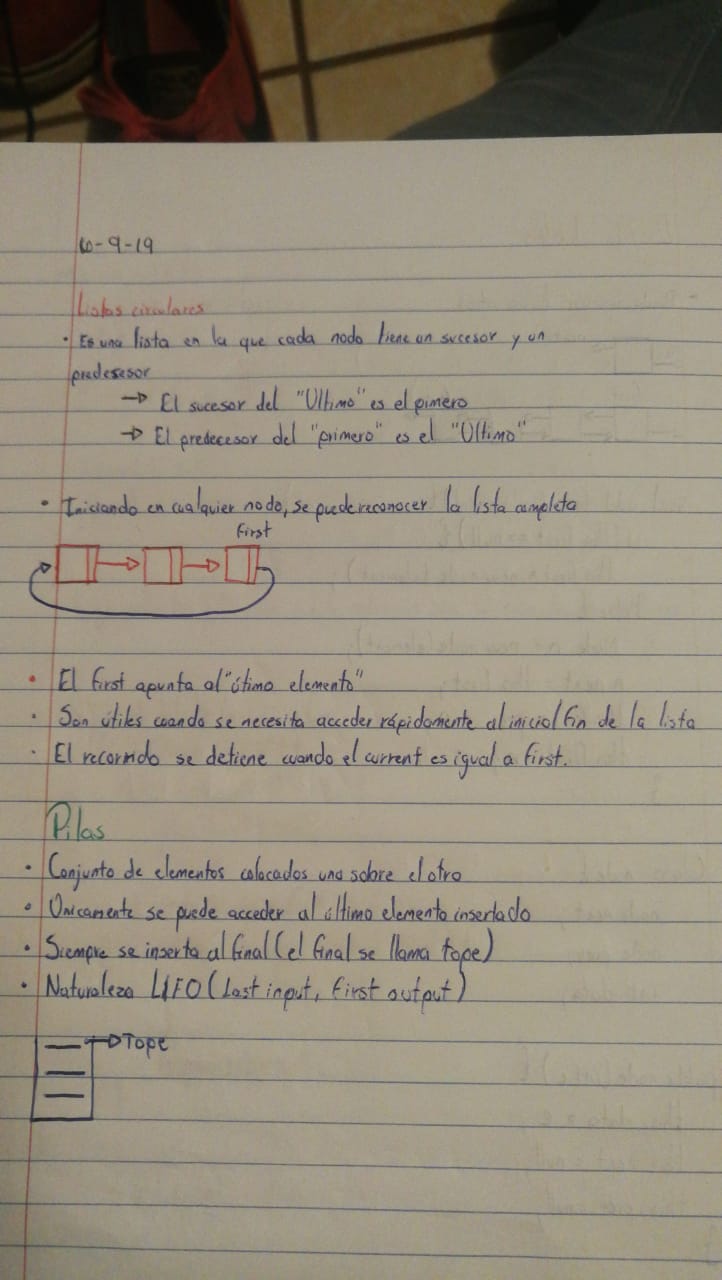 6-9-19
Listas circulares
• Es una lista en la que cada nodo tiene un sucesor y un
predesesor
→ El sucesor del "Ultimo" es el pimero
→ El predecesor del "primero" es el "Ultimo"
• Iniciando en cualquier nodo, se puede reconocer la lista completa
First
• El first apunta al "útimo elemento"
• Son útiles cuando se necesita acceder rápidamente al inicial fin de la lista
• El recorrido se detiene cuando el current es igual a first.
Pilas
• Conjunto de elementos colocados uno sobre el otro
• Unicamente se puede acceder al último elemento insertado
• Siempre se inserta al final (el final se llama tope)
• Naturaleza LIFO (Last input, First output)
→ Tope